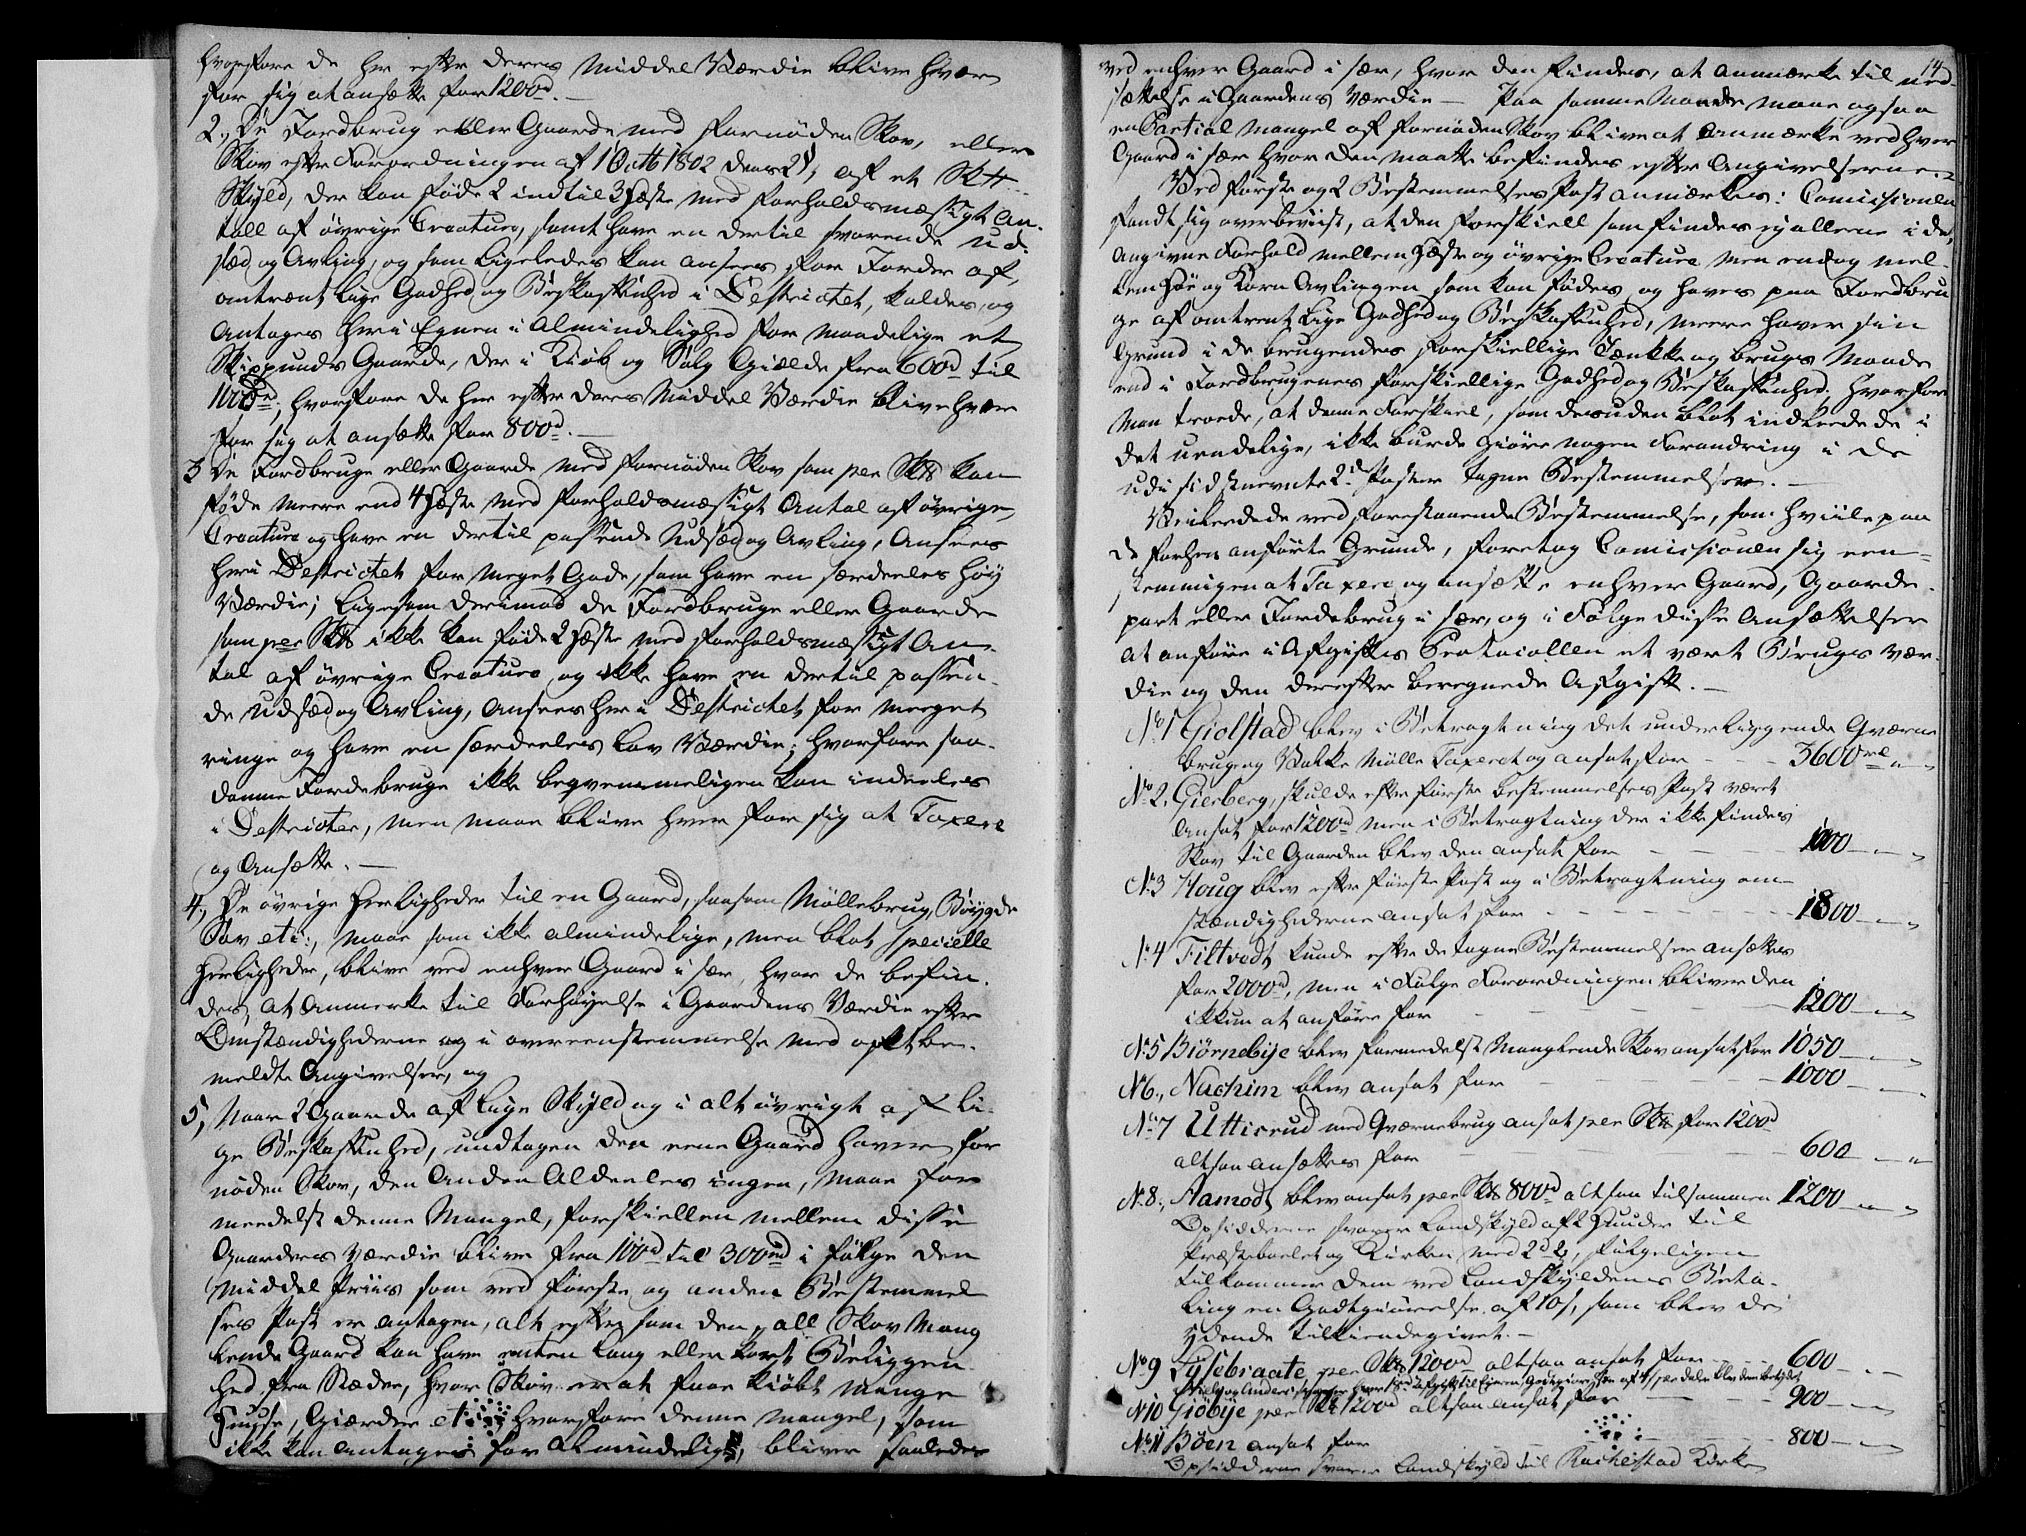 hvorfore de her efter deres Middel Værdie blive hvær
for sig at ansætte for 1200d. —
2., De Jordbrug eller Gaarde med fornøden Skov, eller
Skov efter Forordningen af 1 Octb 1802 dens 2§, af et Skt
Skyld, der kan føde 2 indtil 3 Heste med forholdsmæsigt An-
tall af øvrige Creature, samt have en dertil svarende Ud-
sæd og Avling, og som ligeledes kan ansees for Jorder af
omtrent lige Godhed og Beskaffenhed i Destrictet, kaldes, og
Antages her i Egnen i Almindelighed for maadelige et
Skippunds Gaarde, der i Kiøb og Salg Giælde fra 600d til
1000d; hvorfore de her efter deres Middel Værdie blive hvær
for sig at ansætte for 800d. —
3 De Jordbruge eller Gaarde med fornøden Skov som per Skt kan
føde meere end 4 Heste med forholdsmæsigt Antal af øvrige
Creature og have en dertil passende Udsæd og Avling, Ansees
her i Destrictet for Meget Gode, som have en særdeeles høy
Værdie; ligesom derimod de Jordbruge eller Gaarde
som per Skt ikke kan føde 2 Heste med forholdsmæsigt An-
tal af øvrige Creature, og ikke have en dertil passen-
de Udsæd og Avling, Ansees her i Destrictet for meeget
ringe og have en særdeeles lav Værdie; hvorfore saa-
danne Jordebruge ikke beqvemmeligen kan indeeles
i Destricter, men maae blive hver for sig at Taxere
og Ansætte. —
4., De øvrige Herligheder til en Gaard, saasom Møllebrug, Bøygde
Sav etc:, maae som ikke almindelige, men blot specielle
Herligheder, blive ved enhver Gaard i sær, hvor de befin-
des, at Anmerke til Forhøyelse i Gaardens Værdie efter
Omstændighederne og i overeenstemmelse med oftbe-
meldte Angivelser, og
5, Naar 2 Gaarde af lige Skyld og i alt øvrigt af li-
ge Beskaffenhed, undtagen den eene Gaard haver for
nøden Skov, den Anden Aldeeles ingen, maae for
meedelst denne Mangel, forskiellen mellem disse
Gaarders Værdie blive fra 100d til 300rd i følge den
Middel Priis som ved første og anden Bestemmel
ses Post er antagen, alt efter som den all Skov Mang
lende Gaard kan have enten lang eller kort Beliggen-
hed fra Stæder, hvor Skov er at faae kiøbt mange
Huuse, Giærder etc: hvorfore denne mangel, som
ikke kan antages for Almindelig, bliver saaledes
14
ved enhver Gaard i sær, hvor den findes, at Anmærke til ned-
sættelse i Gaardens Værdie — Paa samme Maade maae ogsaa
en Partial Mangel af fornøden Skov blive at Anmærke ved hver
Gaard i sær hvor den maatte befindes efter Angivelserne. —
Ved første og 2 Bestemmelses Post anmærkes: Comissionen
fandt sig overbeviist, at den forskiell som findes ej alleene i de
Angivne Forhold mellem Heste og øvrige Creature men endog mel-
lem Høe og Korn Avlingen som kan fødes og haves paa Jordbru
ge af omtrent lige Godhed og Beskaffenhed, meere haver sin
Grund i de brugendes forskiellige Tænkke og brugs Maade
end i Jordbrugenes forskiellige Godhed og Beskaffenhed; hvorfore
Man troede, at denne Forskiel, som desuden blot indleedede i
det uendelige, ikke burde giøre nogen Forandring i de
udi sidstnevnte 2d Poster tagne Bestemmelser. —
Veileedede ved forestaaende Bestemmelse, som hviile paa
de forhen anførte Grunde, foretog Comissionen sig een-
stemmigen at Taxere og ansætte enhver Gaard, Gaarde-
part eller Jordebrug i sær, og i Følge disse Ansættelser
at anføre i Afgifts Protocollen et vært Brugs Vær-
die og den derefter beregnede Afgift. —
No 1 Giolstad blev i Betragtning det underliggende Qværne
brug og Bakke Mølle Taxeret og ansat for — — 3600rd „ „
No 2, Gierberg, skulde efter første bestemmelses Post været
Ansat for 1200rd men i Betragtning der ikke findes
Skov til Gaarden blev den ansat for — — 1000 — „ — „
No 3 Houg blev efter første Post og i Betragtning om-
stændighederne ansat for — — 1800 — „ — „
No 4 Filtvedt kunde efter de tagne Bestemmelser ansættes
for 2000rd, men i Følge Forordningen bliver den
ikkun at anføre for — — 1200 — „ — „
No 5 Biørnebye blev formedelst Manglende Skov ansat for 1050 — „ — „
No 6., Nachim blev ansat for — — 1000 — „
No 7 Uttisrud med Qværnebrug ansat per Skt for 1200d
altsaa ansættes for — — 600 — „ — „
No 8., Aamodt blev ansat per Skt 800d altsaa tilsammen 1200 — „ — „
Opsidderne svarer Landskyld af 2 Huuder til
Præsteboelet og Kirken med 2d 2, følgeligen
tilkommer dem ved Landskyldens Beta-
ling en Godtgiørelse af 10s, som blev de
ydende tilkiendegivet. —
No 9 Lysebraate, per Skt 1200d altsaa ansat for — — 600 — „
No 10 Giøbye per Skt 1200d altsaa ansat for — — 900 — „ — „
No 11 Bøen ansat for — — 800 — „ — „
Opsidderne svarer Landskyld til Rachestad Kirke